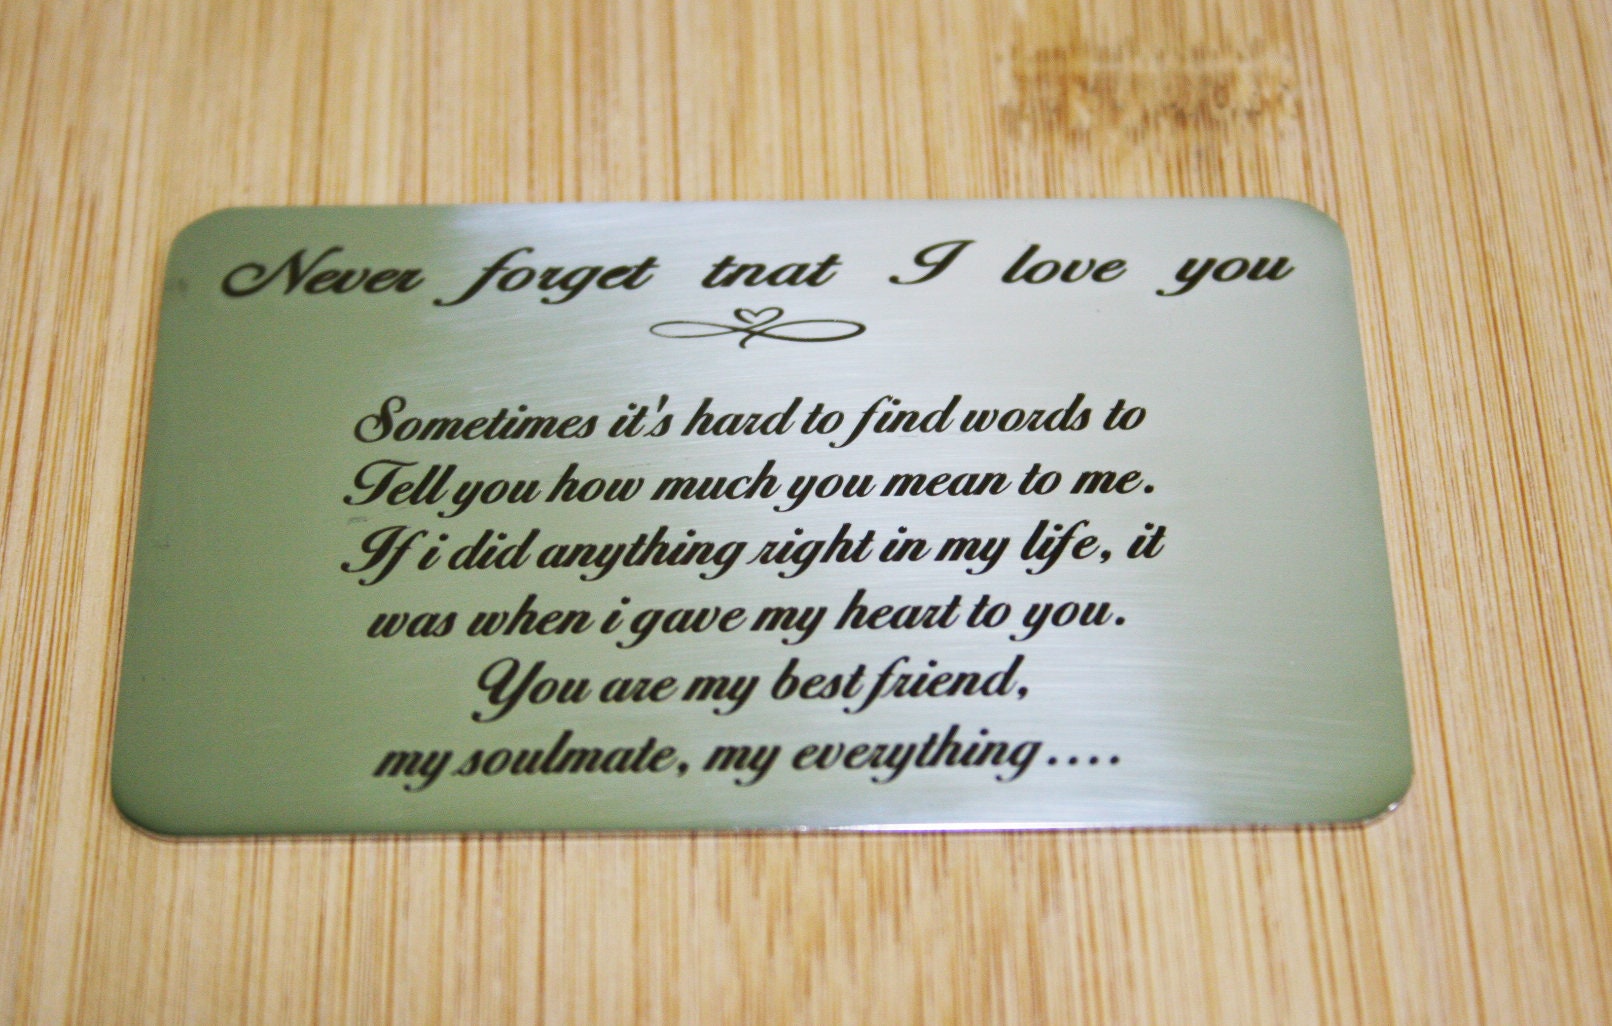 Never forget tnat I love you
Sometimes it's hard to find words to
Tell you how much you mean to me.
If i did anything right in my life, it
was when i gave my heart to you.
You are my best friend,
my soulmate, my everything....